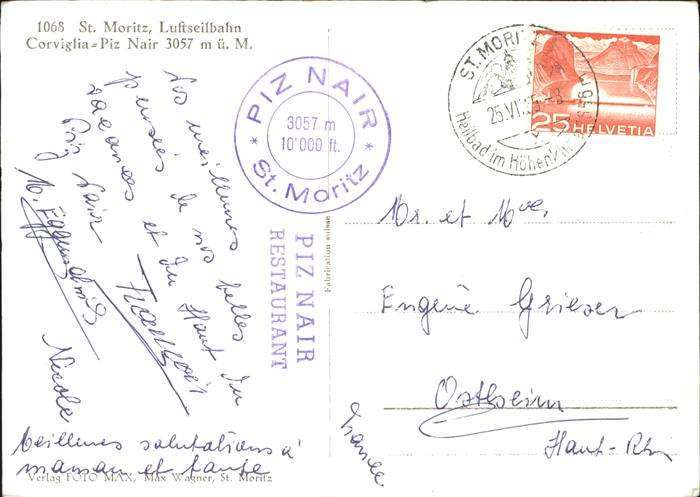 1068 St. Moritz, Luftseilbahn
Corviglia-Piz Nair 3057 m ü. M.
Nos meilleures
pensées de nos belles
vacances et du Haut du
Piz Nair
François
Nicole
Meilleures salutations à
maman et tante
PIZ NAIR
3057 m
10'000 ft.
* St. Moritz *
PIZ NAIR
RESTAURANT
Fabrication suisse
ST. MORITZ
25.VI
Heilbad im Hochen
25 HELVETIA
Mr. et Mme.
Eugène Grieser
Ostheim
Haut-Rhin
France
Verlag FOTO MAX, Max Wagner, St. Moritz